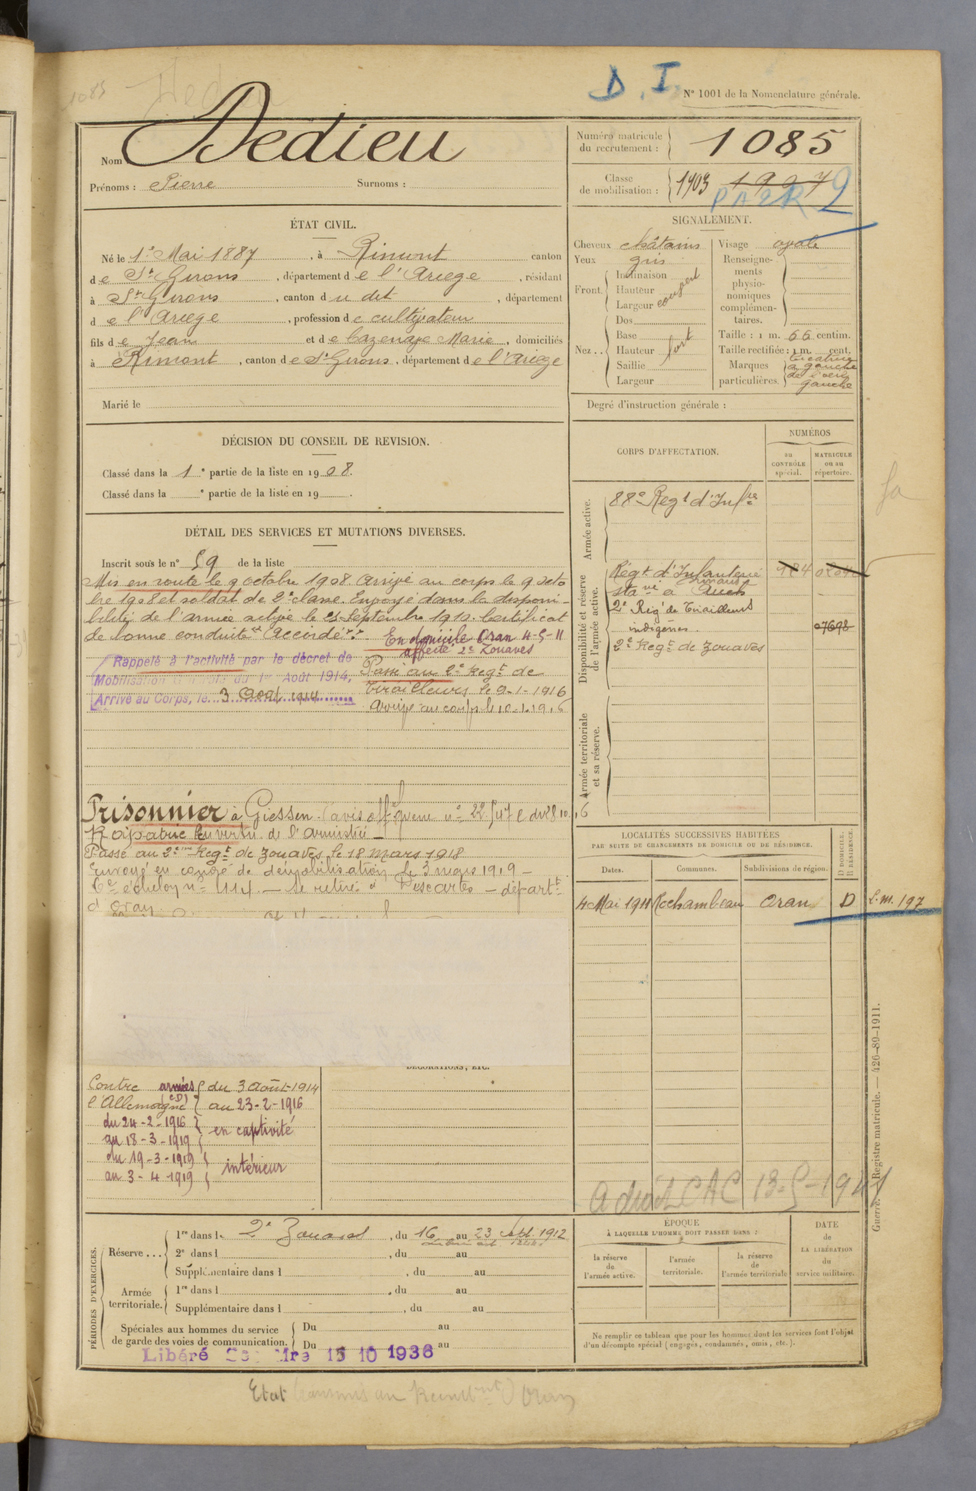 1085
D. I.
N° 1001 de la Nomenclature générale.
Nom Dedieu
Prénoms : Pierre Surnoms :
Numéro matricule du recrutement : 1085
Classe de mobilisation : 1903 1907
PA2R 2
ÉTAT CIVIL.
Né le 1er Mai 1887, à Rimont canton
de St Girons, département de l'Ariège, résidant
à St Girons, canton du dit, département
de l'Ariège, profession de cultivateur
fils de Jean et de Cazenave Marie, domiciliés
à Rimont, canton de St Girons, département de l'Ariège
Marié le
SIGNALEMENT.
Cheveux châtains
Yeux gris
Front. Inclinaison
Hauteur
Largeur
Nez.. Dos
Base
Hauteur fort
Saillie
Largeur
Visage ovale
Renseignements physionomiques complémentaires.
Taille : 1 m. 66 centim.
Taille rectifiée : 1 m. cent.
Marques particulières.
gauche
Degré d'instruction générale :
DÉCISION DU CONSEIL DE REVISION.
Classé dans la 1e partie de la liste en 1908.
Classé dans la e partie de la liste en 19 .
DÉTAIL DES SERVICES ET MUTATIONS DIVERSES.
Inscrit sous le n° 59 de la liste
Mis en route le 9 octobre 1908. Arrivé au corps le 9 octo
bre 1908 et soldat de 2e classe. Envoyé dans la disponi-
bilité de l'armée active le 25 Septembre 1910. Certificat
de bonne conduite "Accordé".
En domicile Oran 4-5-11
affecté 2e Zouaves
Rappelé à l'activité par le décret de
Mobilisation Générale du 1er Août 1914,
Arrivé au Corps, le 3 Août 1914
Passé au 2e Régt de
Tirailleurs le 9-1-1916
Arrivé au corps le 10-1-1916
Prisonnier à Giessen (avis offel guerre n° 22.547 E du 28.10.16
Rapatrié en vertu de l'armistice
Passé au 2ème Régt de Zouaves le 18 mars 1918
Envoyé en congé de démobilisation le 3 mars 1919 –
6e échelon n° 1114. – Se retire à Descartes – départt
d'Oran
CORPS D'AFFECTATION.
NUMÉROS
au CONTRÔLE spécial.
MATRICULE ou au répertoire.
Armée active.
88e Régt d'Infie
Disponibilité et réserve de l'armée active.
Régt d'Infanterie
stané à Auch
2e Rég. de Tirailleurs
indigènes 07698
2e Régt de Zouaves
Armée territoriale et sa réserve.
LOCALITÉS SUCCESSIVES HABITÉES
PAR SUITE DE CHANGEMENTS DE DOMICILE OU DE RÉSIDENCE.
Dates. Communes. Subdivisions de région. D DOMICILE. R RÉSIDENCE.
4 Mai 1911 Rochambeau Oran D L.m. 197
DÉCORATIONS, ETC.
Contre armées du 3 Août 1914
l'Allemagne (CD) au 23-2-1916
du 24-2-1916
au 18-3-1919 en captivité
du 19-3-1919
au 3-4-1919 intérieur
a droit CAC 13-5-1941
Guerre. Registre matricule. — 426-89-1911.
PÉRIODES D'EXERCICES.
Réserve... 1re dans le 2e Zouaves, du 16 au 23 Sept. 1912
2e dans l , du au
Supplémentaire dans l , du au
Armée territoriale. 1re dans l , du au
Supplémentaire dans l , du au
Spéciales aux hommes du service de garde des voies de communication. Du au
Du au
Libéré 15 10 1936
ÉPOQUE
À LAQUELLE L'HOMME DOIT PASSER DANS :
la réserve de l'armée active.
l'armée territoriale.
la réserve de l'armée territoriale
DATE DE LA LIBÉRATION du service militaire.
Ne remplir ce tableau que pour les hommes dont les services font l'objet
d'un décompte spécial (engagés, condamnés, omis, etc.).
Etat transmis au Recrutment d'Oran